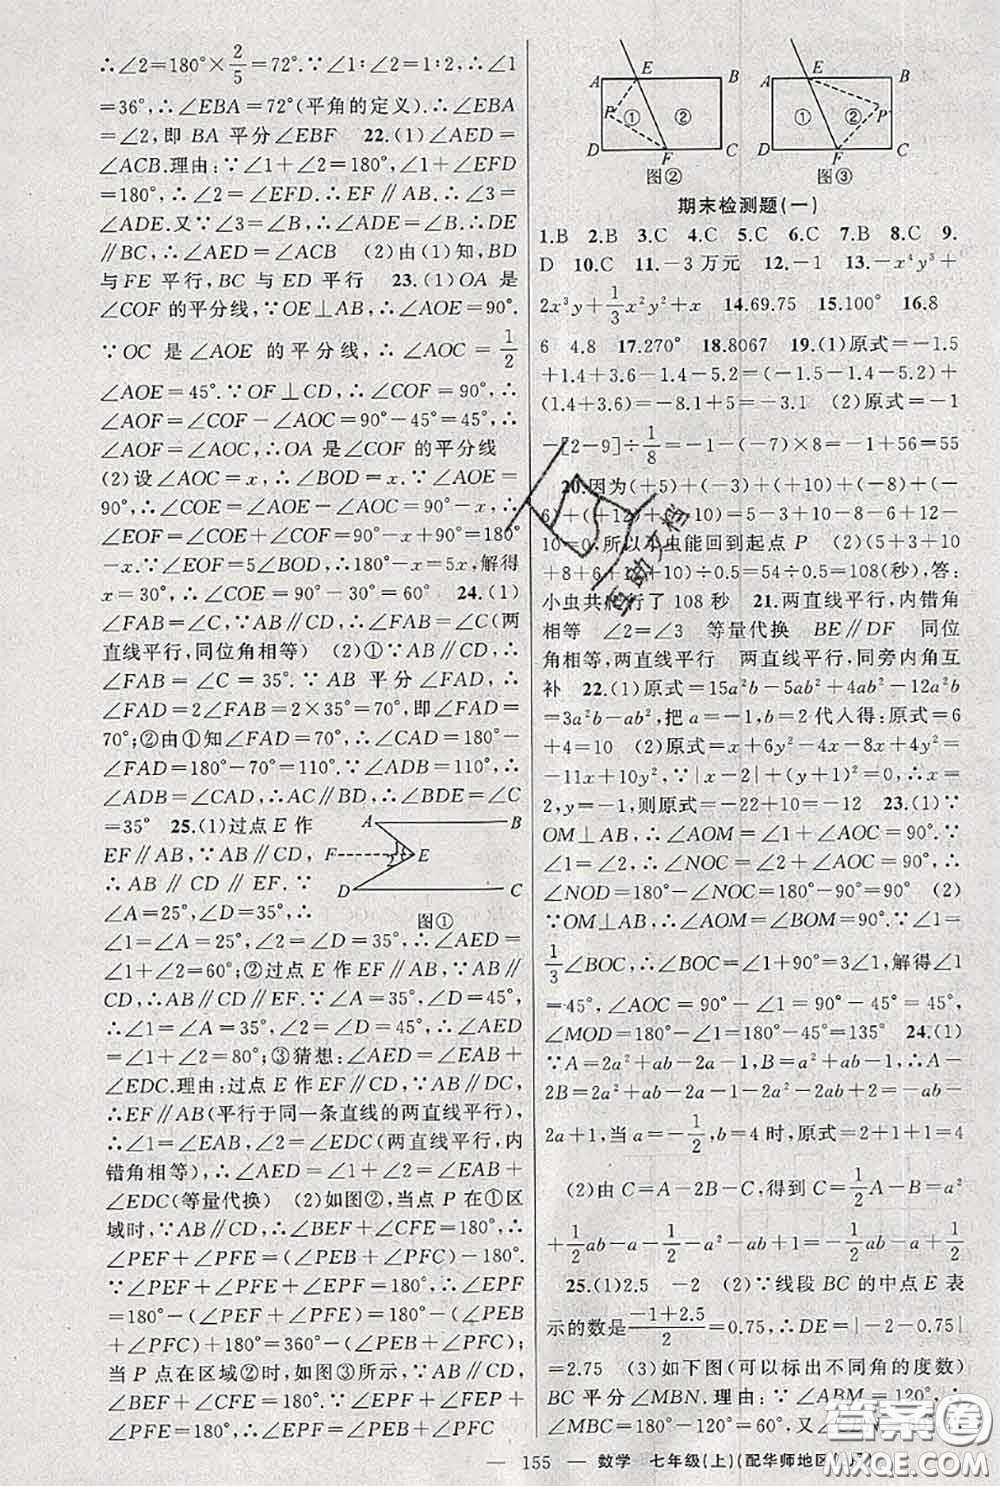 ∴∠2=180°×2/5=72°.∵∠1∶∠2=1∶2,∴∠1
=36°,∴∠EBA=72°(平角的定义).∴∠EBA
=∠2,即 BA 平分∠EBF 22.(1)∠AED=
∠ACB.理由:∵∠1+∠2=180°,∠1+∠EFD
=180°,∴∠2=∠EFD.∴EF∥AB.∴∠3=
∠ADE.又∵∠3=∠B,∴∠ADE=∠B.∴DE
∥BC,∴∠AED=∠ACB (2)由(1)知,BD
与FE 平行,BC 与 ED 平行 23.(1)OA 是
∠COF 的平分线,∵OE⊥AB,∴∠AOE=90°.
∵OC 是∠AOE 的平分线,∴∠AOC=1/2
∠AOE=45°.∵OF⊥CD,∴∠COF=90°,∴
∠AOF=∠COF-∠AOC=90°-45°=45°,∴
∠AOF=∠AOC,∴OA 是∠COF 的平分线
(2)设∠AOC=x,∴∠BOD=x.∵∠AOE=
90°,∴∠COE=∠AOE-∠AOC=90°-x,∴
∠EOF=∠COE+∠COF=90°-x+90°=180°
-x.∵∠EOF=5∠BOD,∴180°-x=5x,解得
x=30°,∴∠COE=90°-30°=60° 24.(1)
∠FAB=∠C,∵AB∥CD,∴∠FAB=∠C(两
直线平行,同位角相等) (2)①∵AB∥CD,∴
∠FAB=∠C=35°.∵AB 平分∠FAD,∴
∠FAD=2∠FAB=2×35°=70°,即∠FAD=
70°;②由①知∠FAD=70°,∴∠CAD=180°-
∠FAD=180°-70°=110°,∵∠ADB=110°,∴
∠ADB=∠CAD,∴AC∥BD,∴∠BDE=∠C
=35° 25.(1)过点 E 作
EF∥AB,∵AB∥CD,
∴AB∥CD∥EF.∵
∠A=25°,∠D=35°,∴
A B
F E
1
2
D C
图①
∠1=∠A=25°,∠2=∠D=35°,∴∠AED=
∠1+∠2=60°;②过点 E 作EF∥AB,∵AB∥
CD,∴AB∥CD∥EF.∵∠A=35°,∠D=45°,
∴∠1=∠A=35°,∠2=∠D=45°,∴∠AED
=∠1+∠2=80°;③猜想:∠AED=∠EAB+
∠EDC.理由:过点 E 作EF∥CD,∵AB∥DC,
∴EF∥AB(平行于同一条直线的两直线平行),
∴∠1=∠EAB,∠2=∠EDC(两直线平行,内
错角相等),∴∠AED=∠1+∠2=∠EAB+
∠EDC(等量代换) (2)如图②,当点 P 在①区
域时,∵AB∥CD,∴∠BEF+∠CFE=180°,∴
∠PEF+∠PFE=(∠PEB+∠PFC)-180°.
∵∠PEF+∠PFE+∠EPF=180°,∴∠EPF
=180°-(∠PEF+∠PFE)=180°-(∠PEB
+∠PFC)+180°=360°-(∠PEB+∠PFC);
当 P 点在区域②时,如图③所示,∵AB∥CD,∴
∠BEF+∠CFE=180°.∵∠EPF+∠FEP+
∠PFE=180°,∴∠EPF=∠PEB+∠PFC
A E B
P ① ②
D F C
图②
A E B
① ② P
D F C
图③
期末检测题(一)
1.B 2.B 3.C 4.C 5.C 6.C 7.B 8.C 9.
D 10.C 11.-3万元 12.-1 13.-x⁴y³+
2x³y+1/3x²y²+x 14.69.75 15.100° 16.8
6 4.8 17.270° 18.8067 19.(1)原式=-1.5
+1.4+3.6-1.4-5.2=(-1.5-1.4-5.2)+
(1.4+3.6)=-8.1+5=-3.1 (2)原式=-1
-[2-9]÷1/8=-1-(-7)×8=-1+56=55
20.因为(+5)+(-3)+(+10)+(-8)+(-
6)+(+12)+(-10)=5-3+10-8-6+12-
10=0,所以小虫能回到起点 P (2)(5+3+10
+8+6+12+10)÷0.5=54÷0.5=108(秒),答:
小虫共爬行了 108 秒 21.两直线平行,内错角
相等 ∠2=∠3 等量代换 BE∥DF 同位
角相等,两直线平行 两直线平行,同旁内角互
补 22.(1)原式=15a²b-5ab²+4ab²-12a²b
=3a²b-ab²,把 a=-1,b=2 代入得:原式=6
+4=10 (2)原式=x+6y²-4x-8x+4y²=
-11x+10y²,∵|x-2|+(y+1)²=0,∴x=
2,y=-1,则原式=-22+10=-12 23.(1)∵
OM⊥AB,∴∠AOM=∠1+∠AOC=90°.∵
∠1=∠2,∴∠NOC=∠2+∠AOC=90°,∴
∠NOD=180°-∠NOC=180°-90°=90° (2)
∵OM⊥AB,∴∠AOM=∠BOM=90°.∵∠1=
1/3∠BOC,∴∠BOC=∠1+90°=3∠1,解得∠1
=45°,∠AOC=90°-∠1=90°-45°=45°,
∠MOD=180°-∠1=180°-45°=135° 24.(1)
∵A=2a²+ab-2a-1,B=a²+ab-1,∴A-
2B=2a²+ab-2a-1-2a²-2ab+2=-ab-
2a+1,当 a=-1/2,b=4 时,原式=2+1+1=4
(2)由 C=A-2B-C,得到 C=1/2A-B=a²
+1/2ab-a-1/2-a²-ab+1=-1/2ab-a+1/2
25.(1)2.5 -2 (2)∵线段 BC 的中点 E 表
示的数是(-1+2.5)/2=0.75,∴DE=|-2-0.75|
=2.75 (3)如下图(可以标出不同角的度数)
BC 平分∠MBN.理由:∵∠ABM=120°,∴
∠MBC=180°-120°=60°,又∠
— 155 — 数学 七年级(上)(配华师地区
答案圈